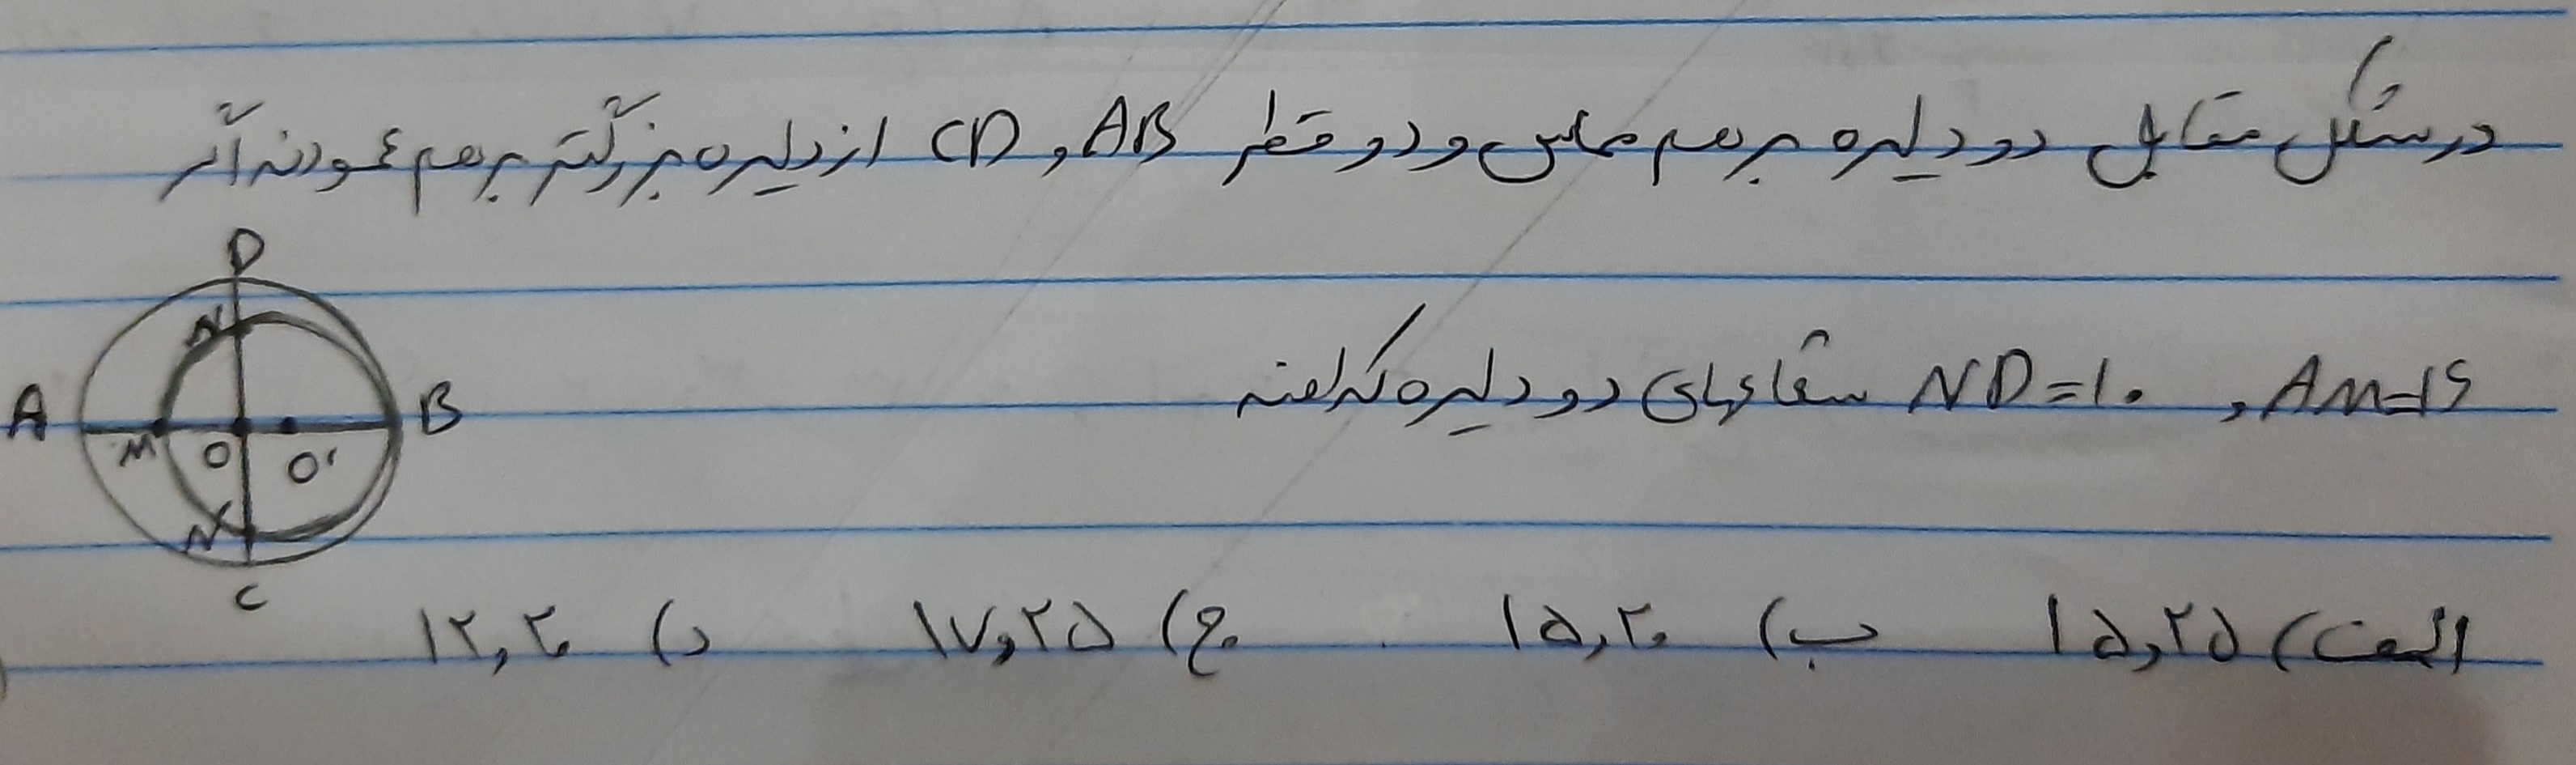 در شکل مقابل دو دایره بر هم مماس و دو قطر AB و CD از دایره بزرگتر بر هم عمودند اگر
AM=۱۶ و ND=۱۰ شعاعهای دو دایره کدامند
D
N
A
M
O
O'
B
N'
C
الف) ۱۵ و ۲۵ ب) ۱۵ و ۲۰ ج) ۱۷ و ۲۵ د) ۱۲ و ۲۰